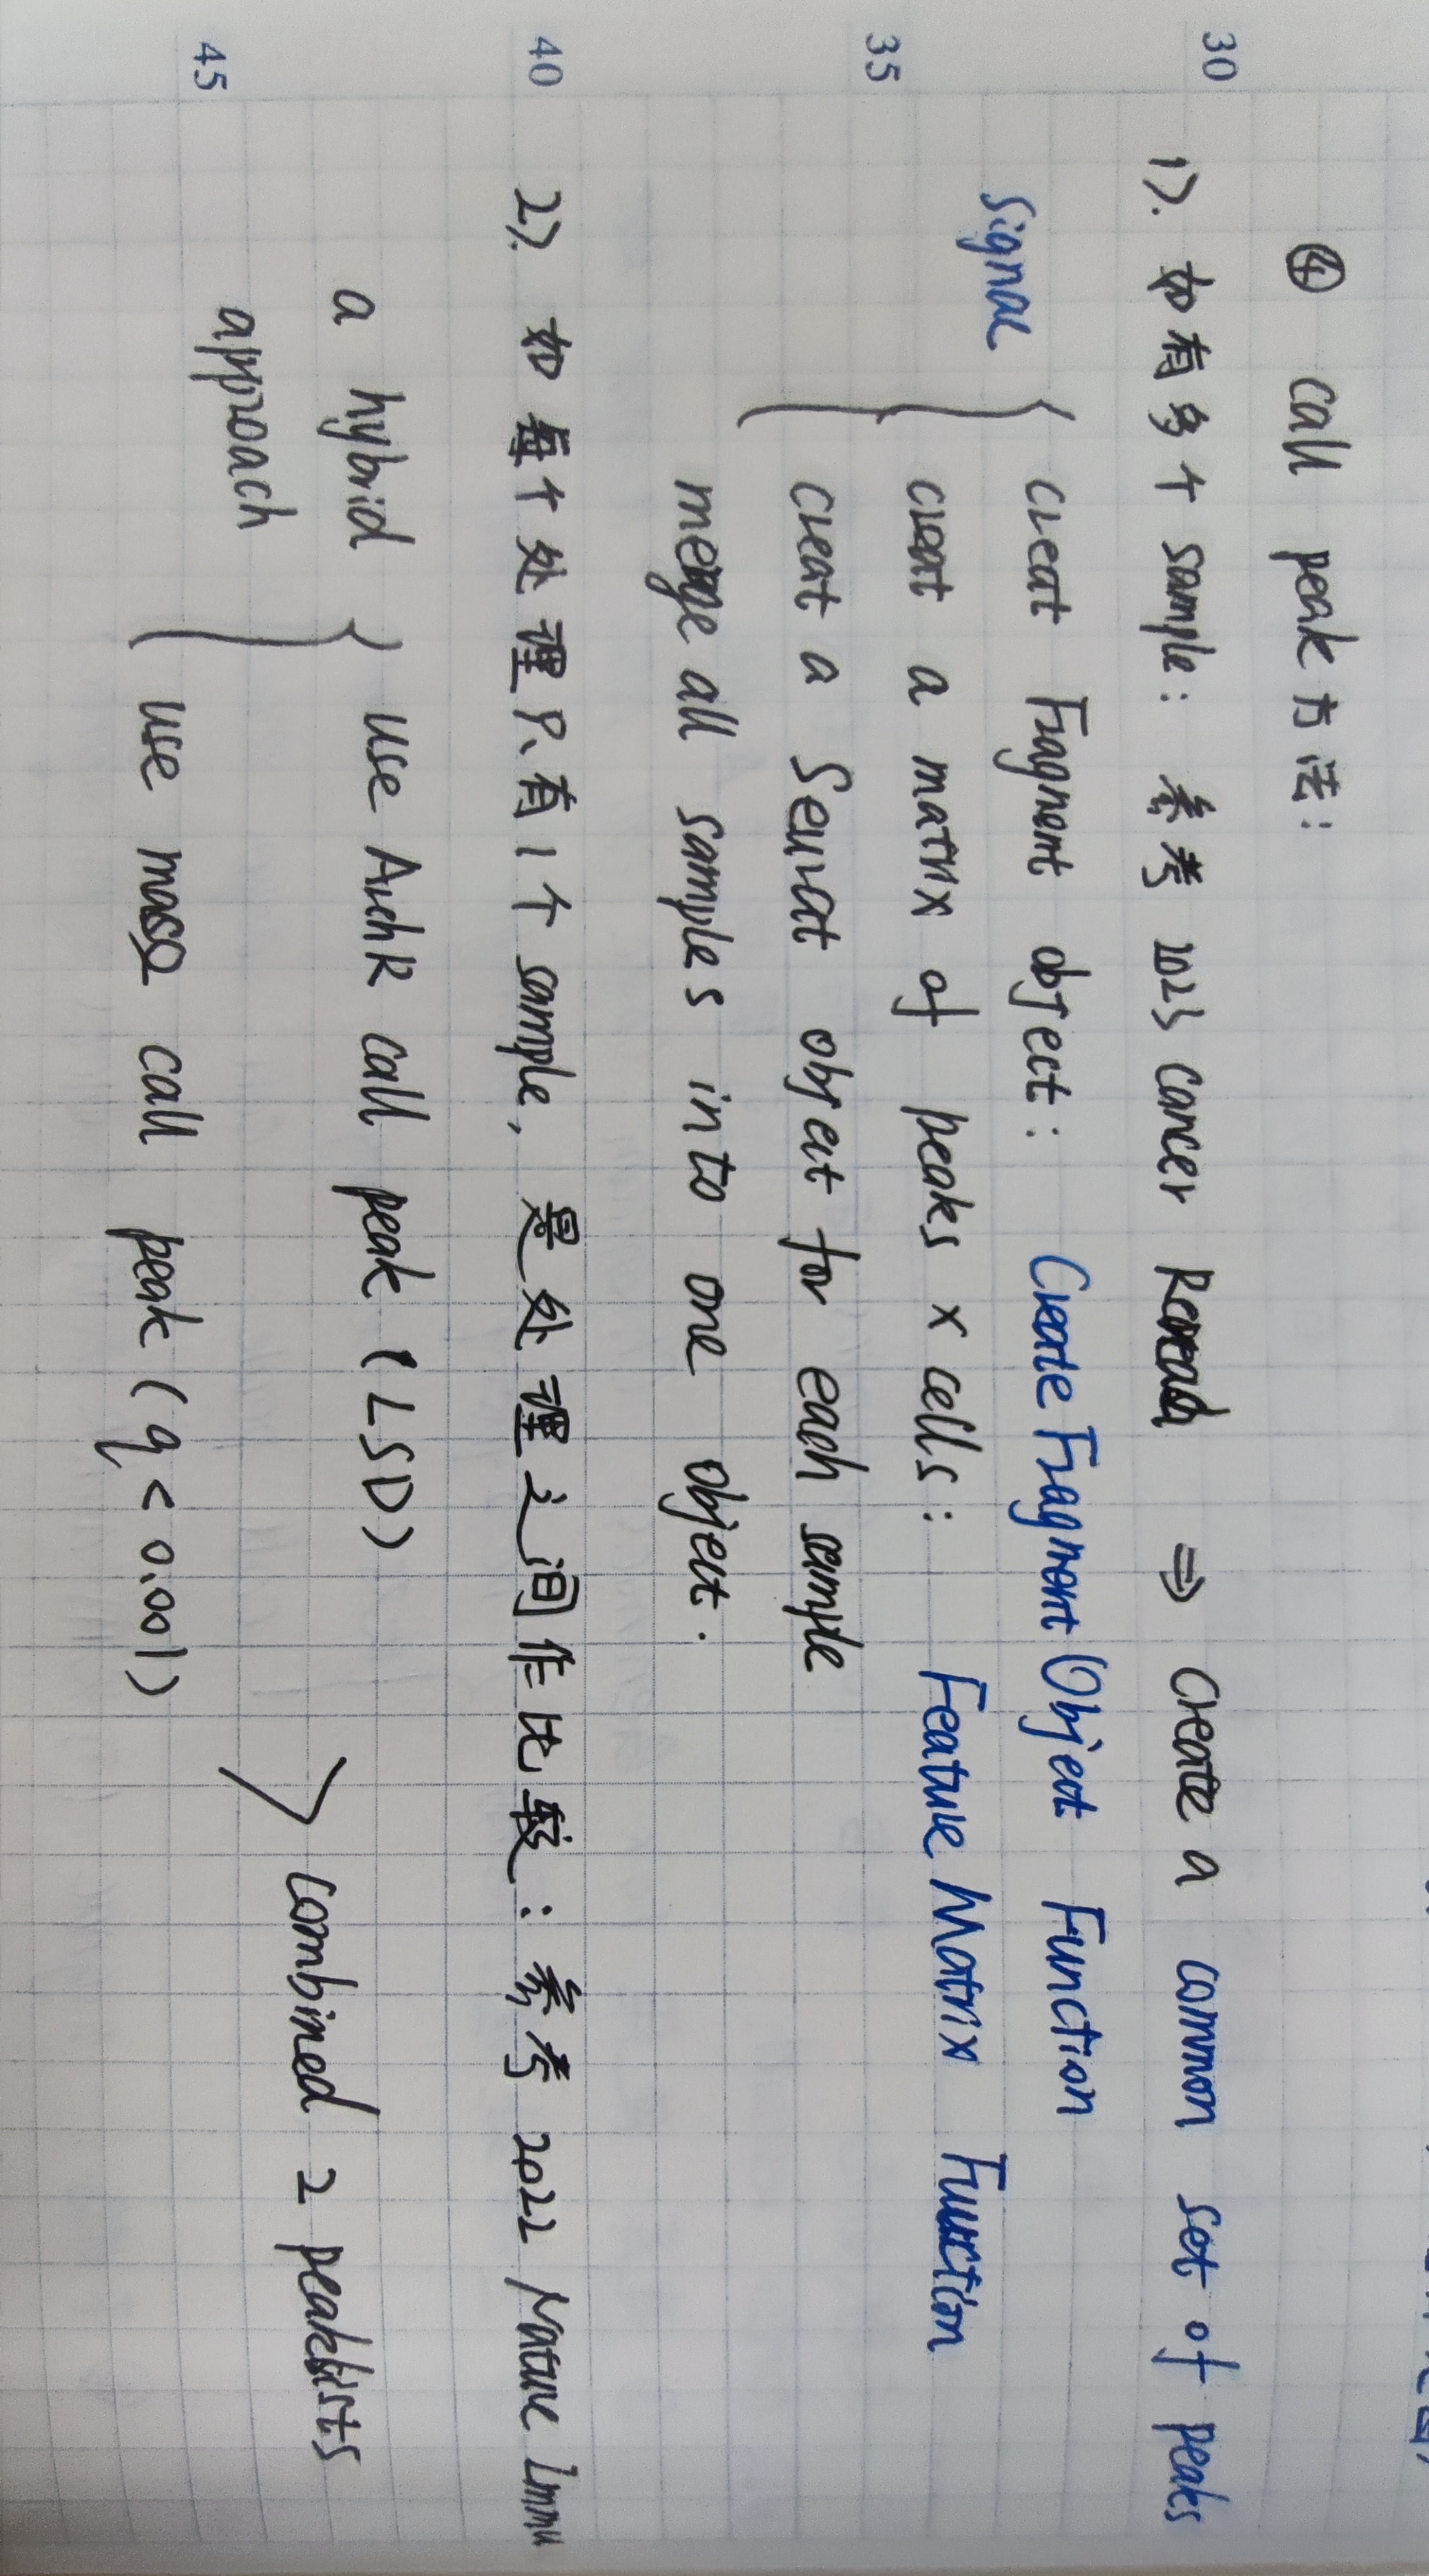 30
④ call peak 方法:
1>. 如有多个 sample: 参考 2023 cancer Research ⇒ Create a common set of peaks
signac
creat Fragment object: Create Fragment Object Function
35
creat a matrix of peaks x cells: Feature Matrix Function
creat a Seurat object for each sample
merge all samples into one object.
40
2>. 如每个处理只有1个 sample, 是处理之间作比较: 参考 2022 Nature Immu
a hybrid approach
use ArchR call peak (LSD)
45
use macs2 call peak (q < 0.001)
combined 2 peaklists